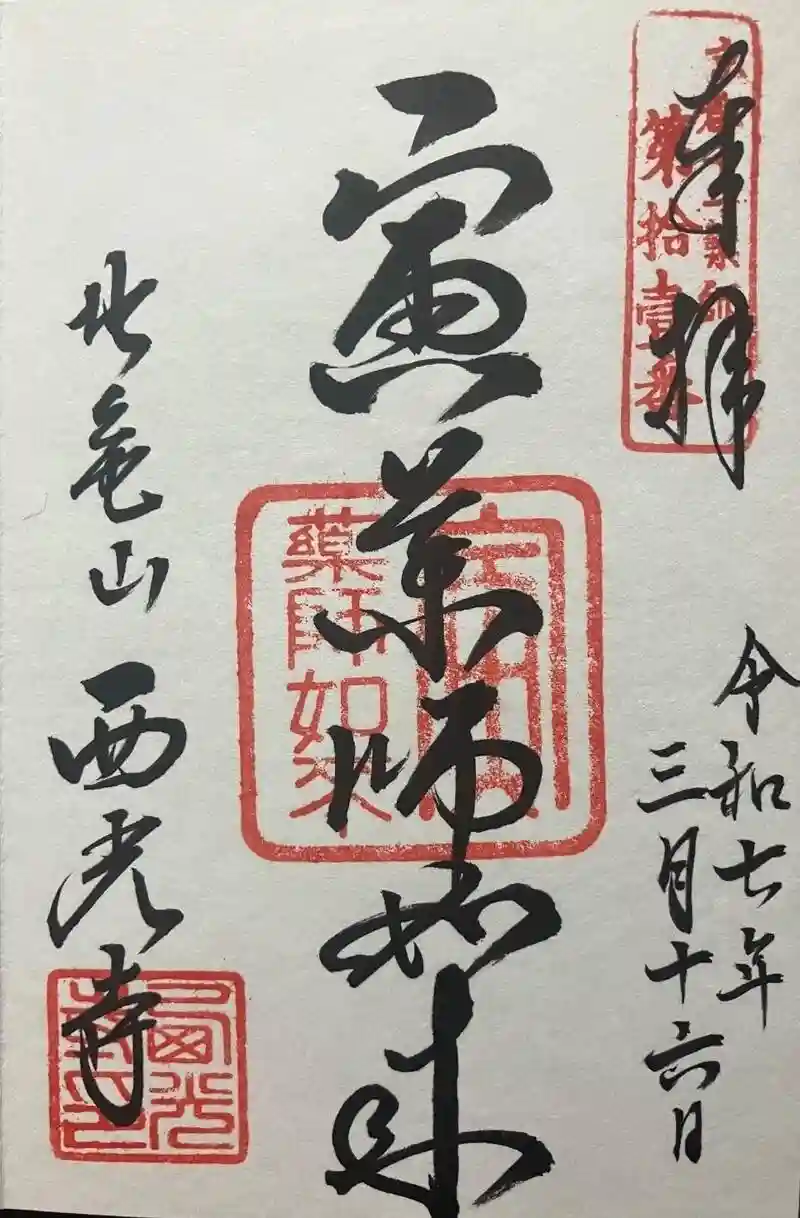 奉拝
第拾壹番
令和七年
三月十六日
寅薬師如来
寅
薬師如来
北亀山 西光寺
西光
寺印